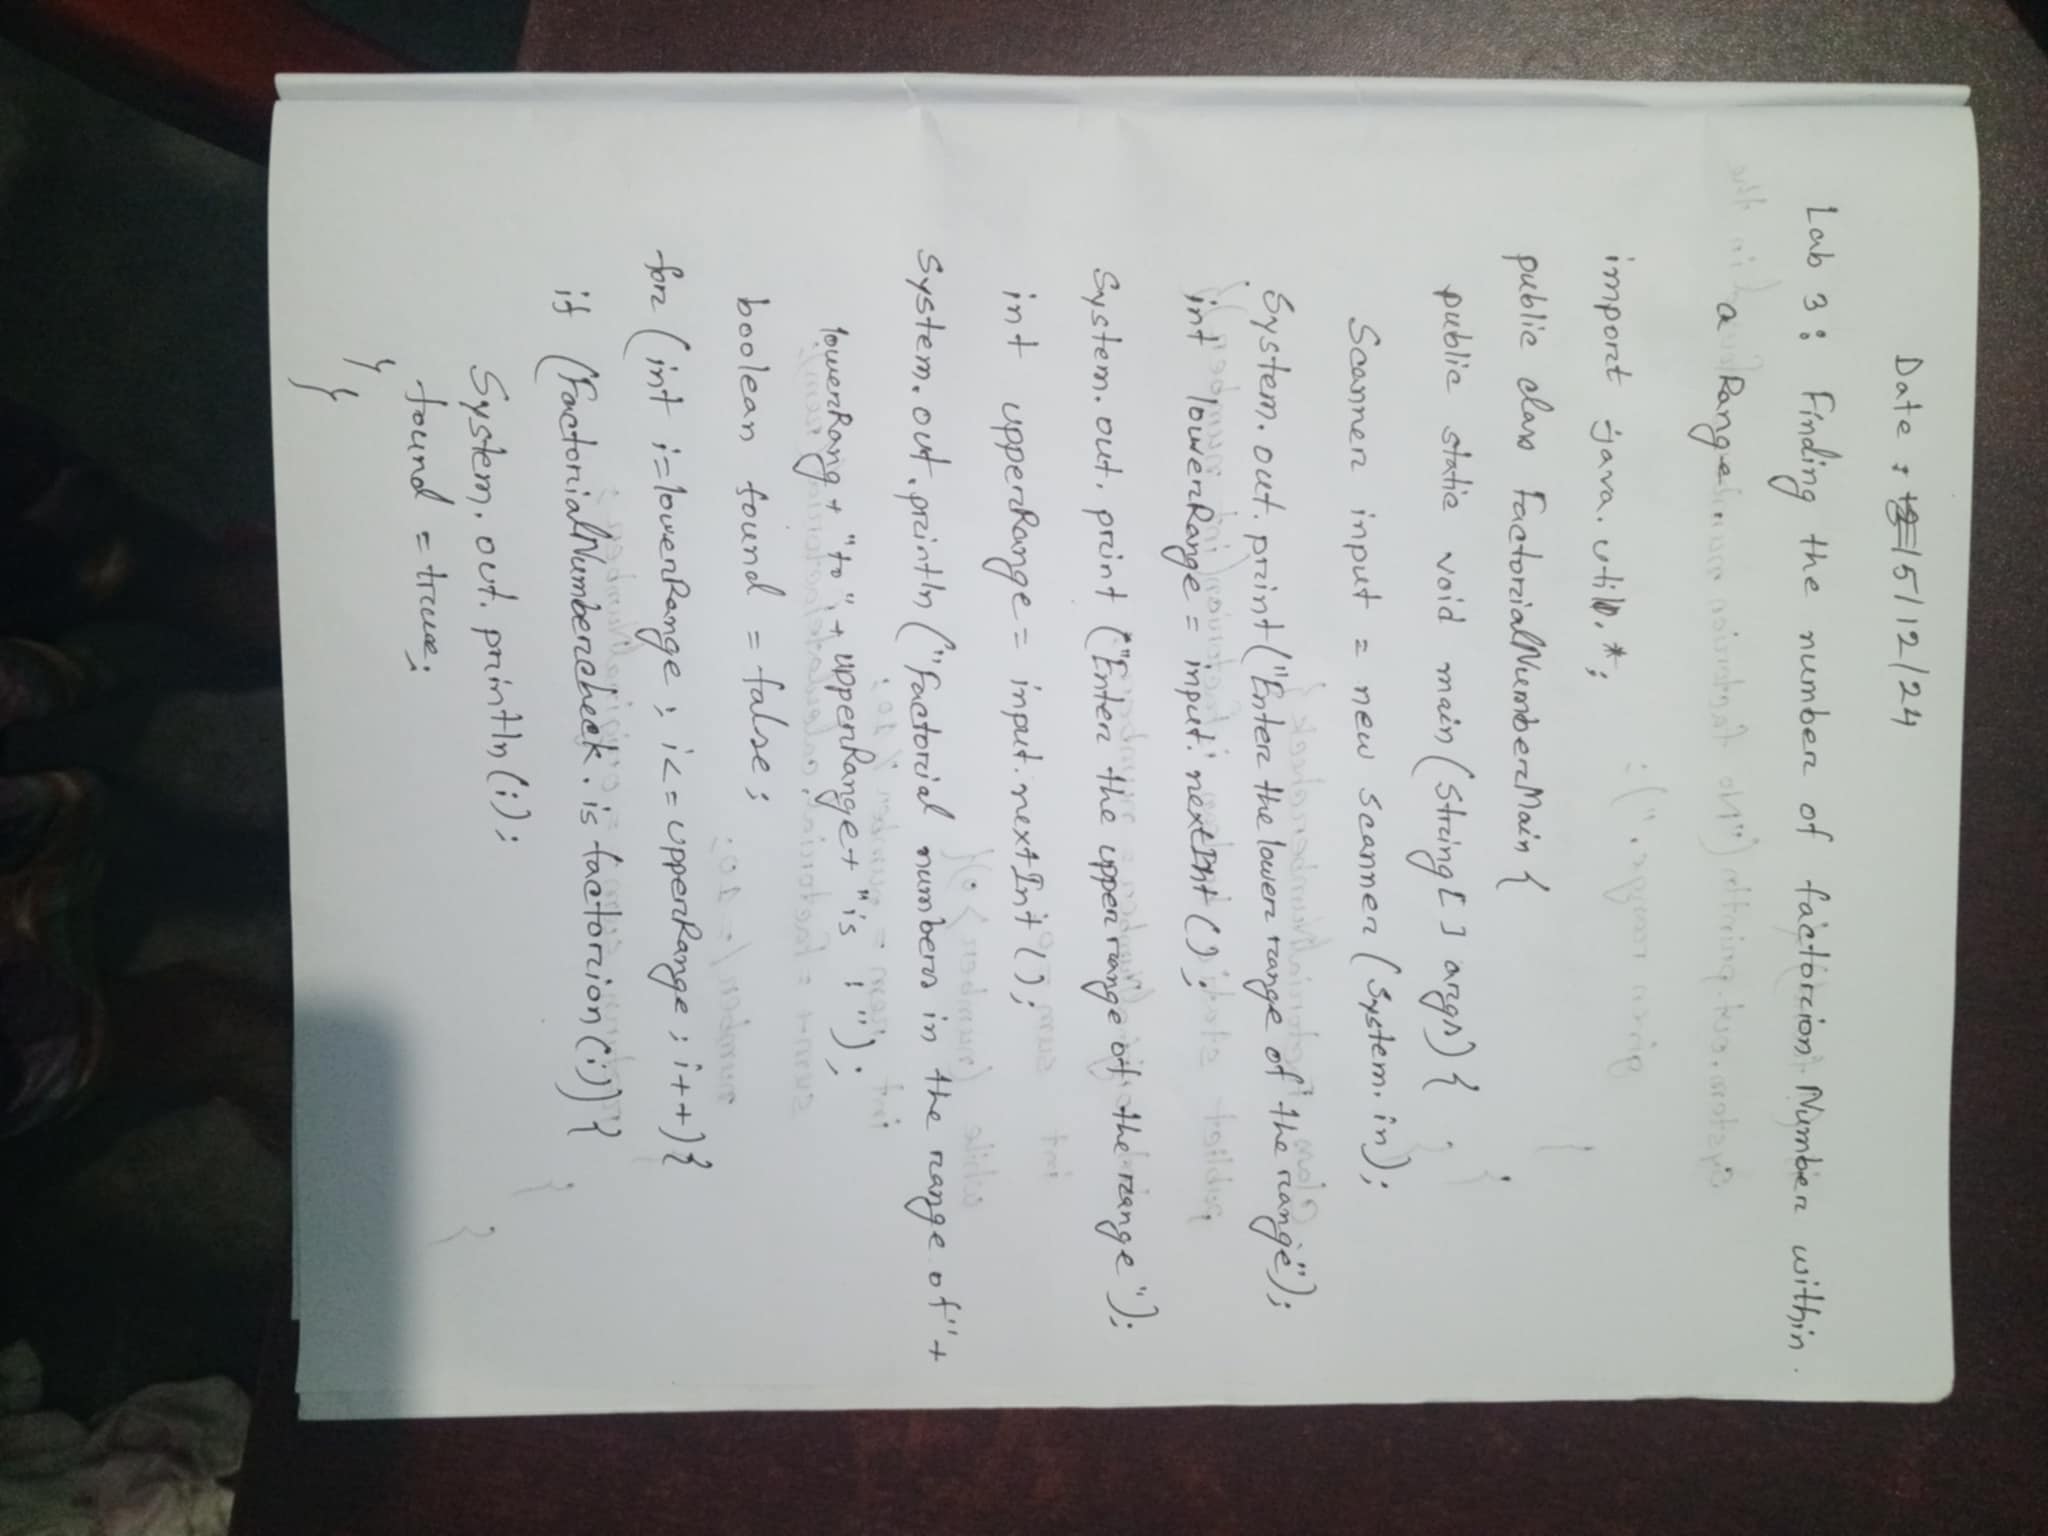 Date : 15/12/24
Lab 3 : Finding the number of factorion Number within
a Range
import java.util.*;
public class FactorialNumberMain {
public static void main(String[] args) {
Scanner input = new scanner (System.in);
System.out.print("Enter the lower range of the range");
int lowerRange = input.nextInt();
System.out.print("Enter the upper range of the range");
int upperRange = input.nextInt();
System.out.println("Factorial numbers in the range of"+
lowerRang+ "to"+upperRange+ "is :");
boolean found = false;
for (int i=lowerRange; i<=upperRange; i++){
if (FactorialNumbercheck.is factorion(i)){
System.out.println(i);
found = true;
}
}